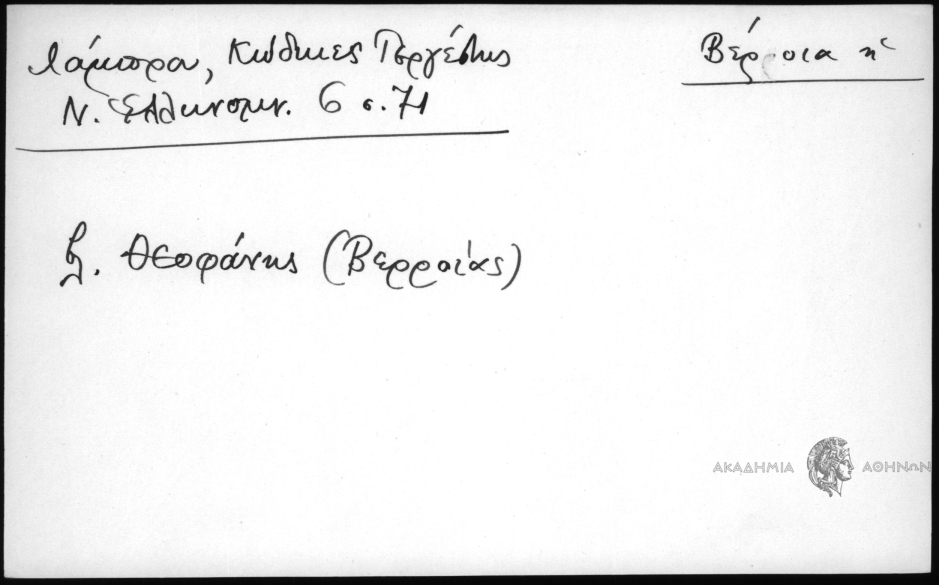 Λάμπρου, Κώδικες Τεργέστης
Ν. Ἑλληνομν. 6 σ. 71
Βέρροια ἡ
βλ. Θεοφάνης (Βερροίας)
ΑΚΑΔΗΜΙΑ ΑΘΗΝΩΝ